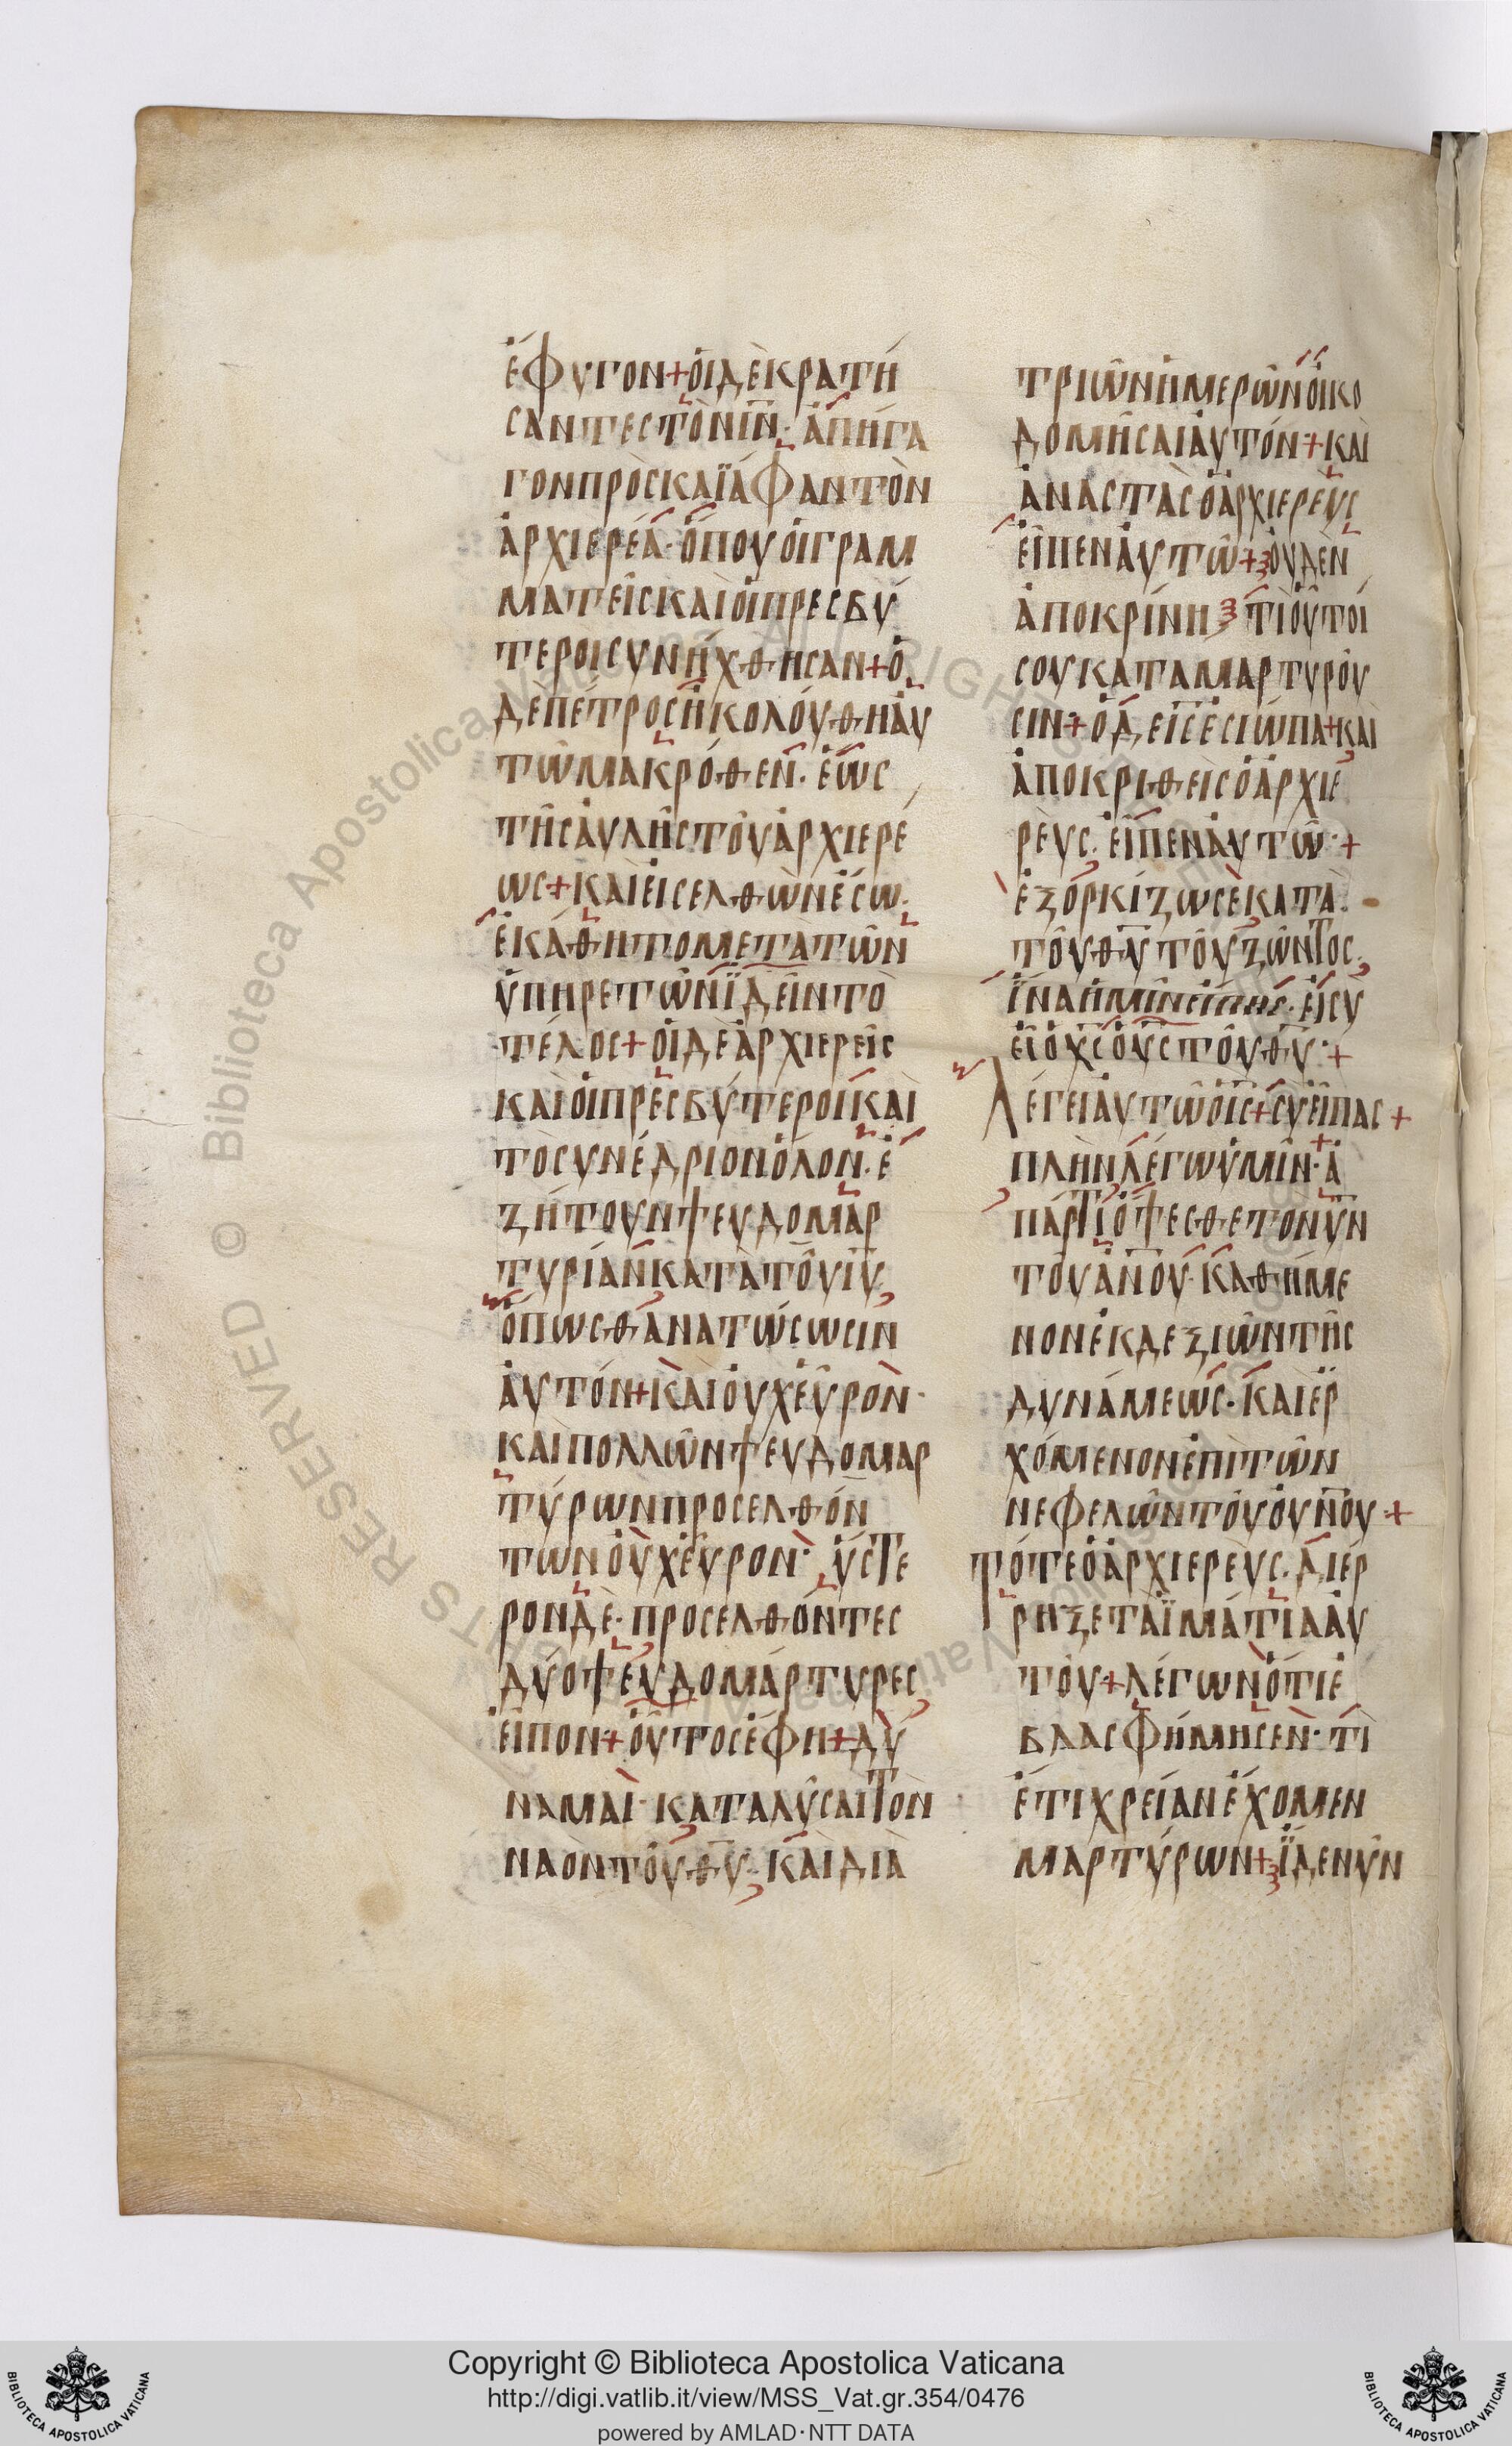 ἔφυγον+ὁι δὲ κρατή
σαντες τὸν ῑν̄· ἀπήγα
γον πρὸς καϊάφαν τὸν
ἀρχιερέα· ὅπου ὁι γραμ
ματεῖς καὶ ὁι πρεσβύ
τεροι συνήχθησαν+ὁ
δὲ πέτρος ἠκολόυθη ἀυ
τῶ μακρόθεν· ἕως
τῆς ἀυλῆς τοῦ ἀρχιερέ
ως+καὶ ἐισελθὼν ἔσω·
ἐκάθητο μετὰ τῶν
ὑπηρετῶν ϊδεῖν τὸ
τέλος+ὁι δὲ ἀρχιερεῖς
καὶ ὁι πρεσβύτεροι καὶ
τὸ συνέδριον ὅλον· ἐ
ζήτουν ψευδομαρ
τυρίαν κατὰ τοῦ ῑῡ·
ὅπως θανατώσωσιν
ἀυτόν+καὶ ὀυχ ἑῦρον·
καὶ πολλῶν ψευδομαρ
τύρων προσελθόν
των ὀυχ ἑῦρον· ὕστε
ρον δὲ· προσελθόντες
δύο ψευδομάρτυρες
ἐῖπον+ὁῦτος ἔφη+δύ
ναμαι· καταλῦσαι τὸν
ναὸν τοῦ θ̄ῡ· καὶ διὰ
τριῶν ἡμερῶν ὀικο
δομῆσαι ἀυτόν+καὶ
ἀναστὰς ὁ ἀρχιερεὺς
ἐῖπεν ἀυτῶ+ὀυδὲν
ἀποκρίνη τί ὁῦτοί
σου καταμαρτυροῦ
σιν+ὁ δὲ ῑς̄ ἐσιώπα+καὶ
ἀποκριθεὶς ὁ ἀρχιε
ρεὺς· ἐῖπεν ἀυτῶ·+
ἐξορκίζω σὲ κατὰ
τοῦ θ̄ῡ τοῦ ζῶντος·
ἵνα ἡμῖν ἔιπης· ἐι σὺ
ἐῖ ὁ χ̄ς̄ ὁ ῡς̄ τοῦ θ̄ῡ·+
Λέγει ἀυτῶ ὁ ῑς̄+σὺ ἐῖπας+
πλὴν λέγω ὑμῖν· ἀ
πάρτι ὄψεσθε τὸν ῡν̄
τοῦ ᾱν̄ο̄ῡ· καθήμε
νον ἐκ δεξιῶν τῆς
δυνάμεως· καὶ ἐρ
χόμενον ἐπὶ τῶν
νεφελῶν τοῦ ὀυν̄ου·+
Τότε ὁ ἀρχιερεὺς· διέρ
ρηξε τὰ ϊμάτια ἀυ
τοῦ+λέγων ὅτι ἐ
βλασφήμησεν· τί
ἔτι χρείαν ἔχομεν
μαρτύρων+ϊδε νῦν
Copyright © Biblioteca Apostolica Vaticana
http://digi.vatlib.it/view/MSS_Vat.gr.354/0476
powered by AMLAD·NTT DATA